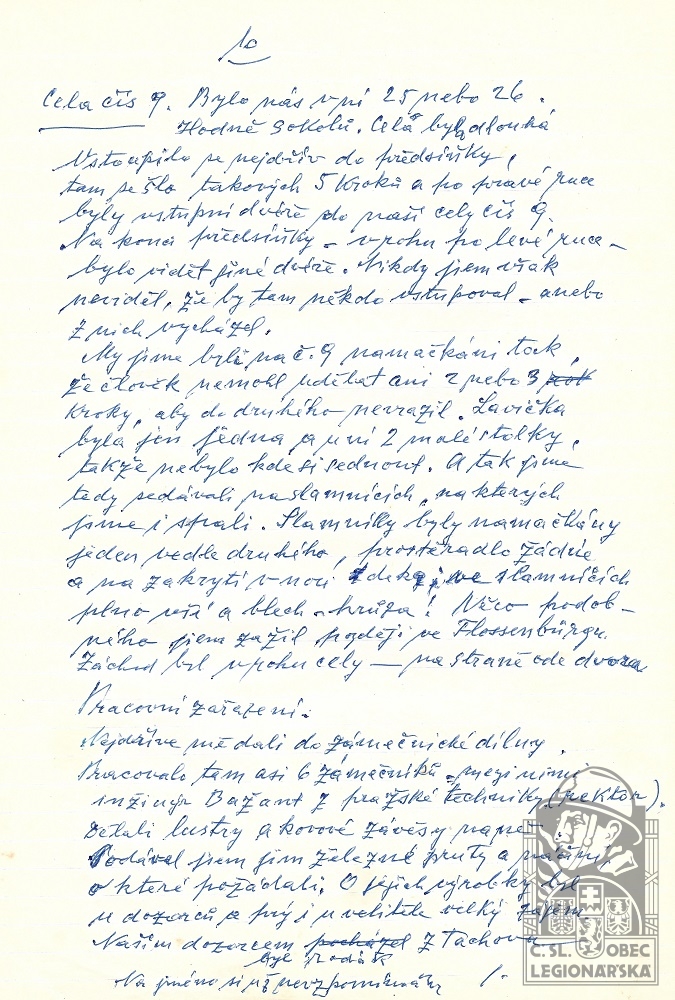 10
Cela čís 9. Bylo nás v ní 25 nebo 26.
Hodně sokolů. Cela byla dlouhá
Vstoupilo se nejdřív do předsíňky,
tam se šlo takových 5 kroků a po pravé ruce
byly vstupní dvéře do naší cely čís 9.
Na konci předsíňky - v rohu po levé ruce -
bylo vidět jiné dvéře. Nikdy jsem však
neviděl, že by tam někdo vstupoval - anebo
z nich vycházel.
My jsme byli na č. 9 namačkáni tak,
že člověk nemohl udělat ani 2 nebo 3
kroky, aby do druhého nevrazil. Lavička
byla jen jedna, a u ní 2 malé stolky,
takže nebylo kde si sednout. A tak jsme
tedy sedávali na slamnících, na kterých
jsme i spali. Slamníky byly namačkány
jeden vedle druhého, prostěradlo žádné
a na zakrytí v noci deka, ve slamnících
plno vší a blech - hrůza! Něco podob-
ného jsem zažil později ve Flossenbürgu.
Záchod byl v rohu cely — na straně ode dvora
Pracovní zařazení:
Nejdříve mě dali do zámečnické dílny.
Pracovalo tam asi 6 zámečníků - mezi nimi
inžinýr Bažant z pražské techniky (rektor).
Dělali lustry a kovové závěsy
Podával jsem jim železné pruty a náčiní,
o které požádali. O jejich výrobky byl
u dozorců a prý i u velitele velký zájem
Naším dozorcem pocházel z Tachova
byl rodák
Na jméno si již nevzpomínám
/.
Č. SL. OBEC
LEGIONÁŘSKÁ